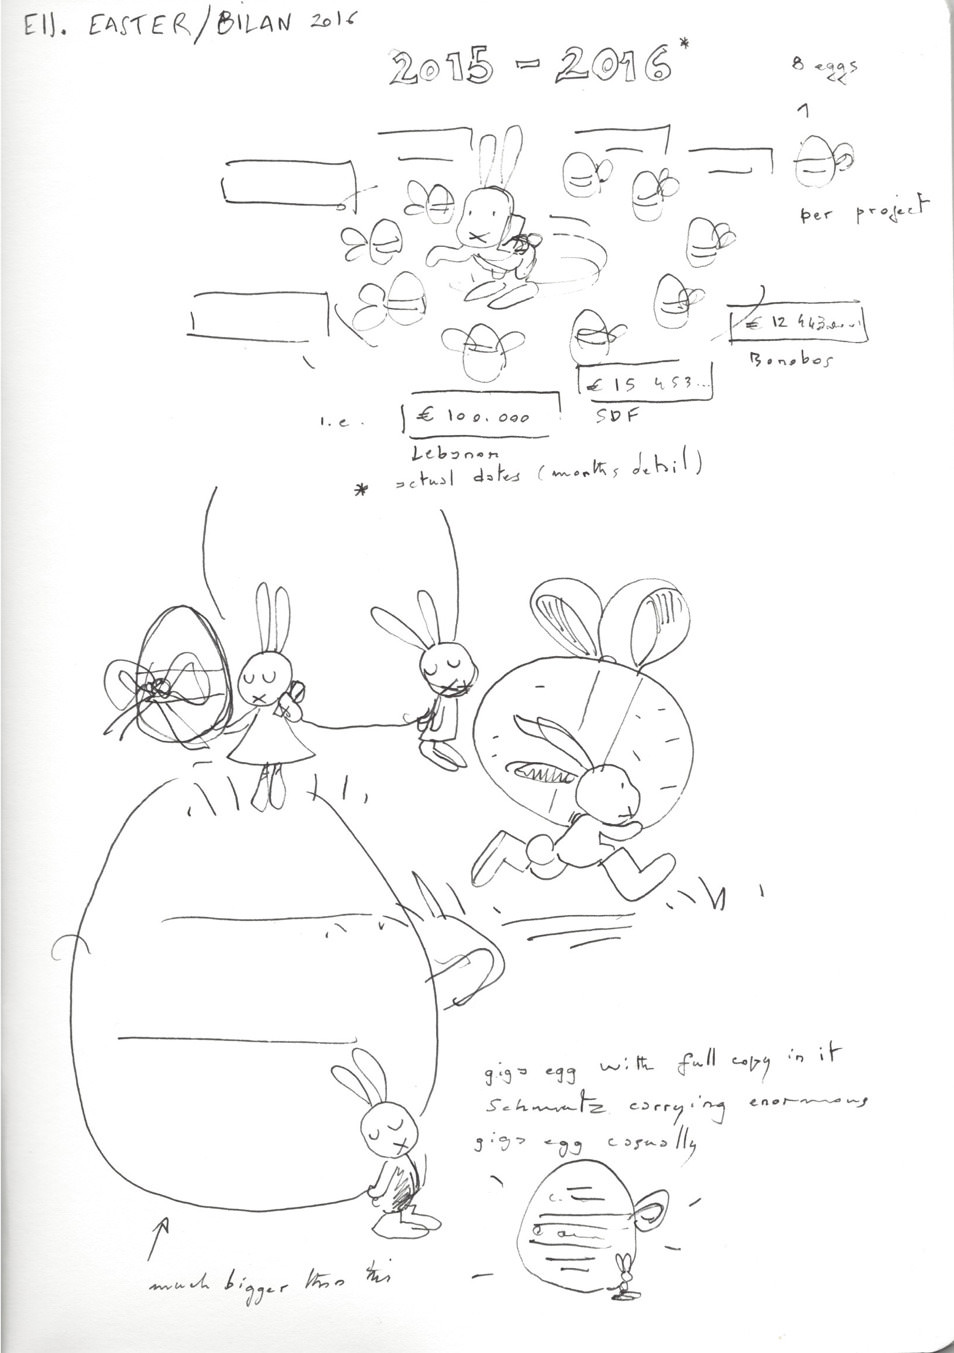 E11. EASTER/BILAN 2016
2015 - 2016*
8 eggs
1
per project
€ 12 443
Bonobos
€ 15 453...
SDF
i.e.
€ 100.000
Lebanon
* actual dates (months detail)
giga egg with full copy in it
Schmutz carrying enormous
giga egg casually
much bigger than this